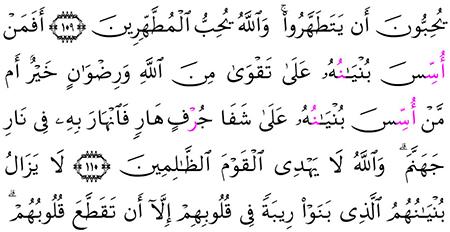 يُحِبُّونَ أَن يَتَطَهَّرُواْۚ وَٱللَّهُ يُحِبُّ ٱلْمُطَّهِّرِينَ ١٠٩ أَفَمَنْ
أُسِّسَ بُنْيَٰنُهُۥ عَلَىٰ تَقْوَىٰ مِنَ ٱللَّهِ وَرِضْوَٰنٍ خَيْرٌ أَم
مَّنْ أُسِّسَ بُنْيَٰنُهُۥ عَلَىٰ شَفَا جُرْفٍ هَارٍ فَٱنْهَارَ بِهِۦ فِى نَارِ
جَهَنَّمَۗ وَٱللَّهُ لَا يَهْدِى ٱلْقَوْمَ ٱلظَّٰلِمِينَ ١١٠ لَا يَزَالُ
بُنْيَٰنُهُمُ ٱلَّذِى بَنَوْاْ رِيبَةً فِى قُلُوبِهِمْ إِلَّآ أَن تَقَطَّعَ قُلُوبُهُمْۗ